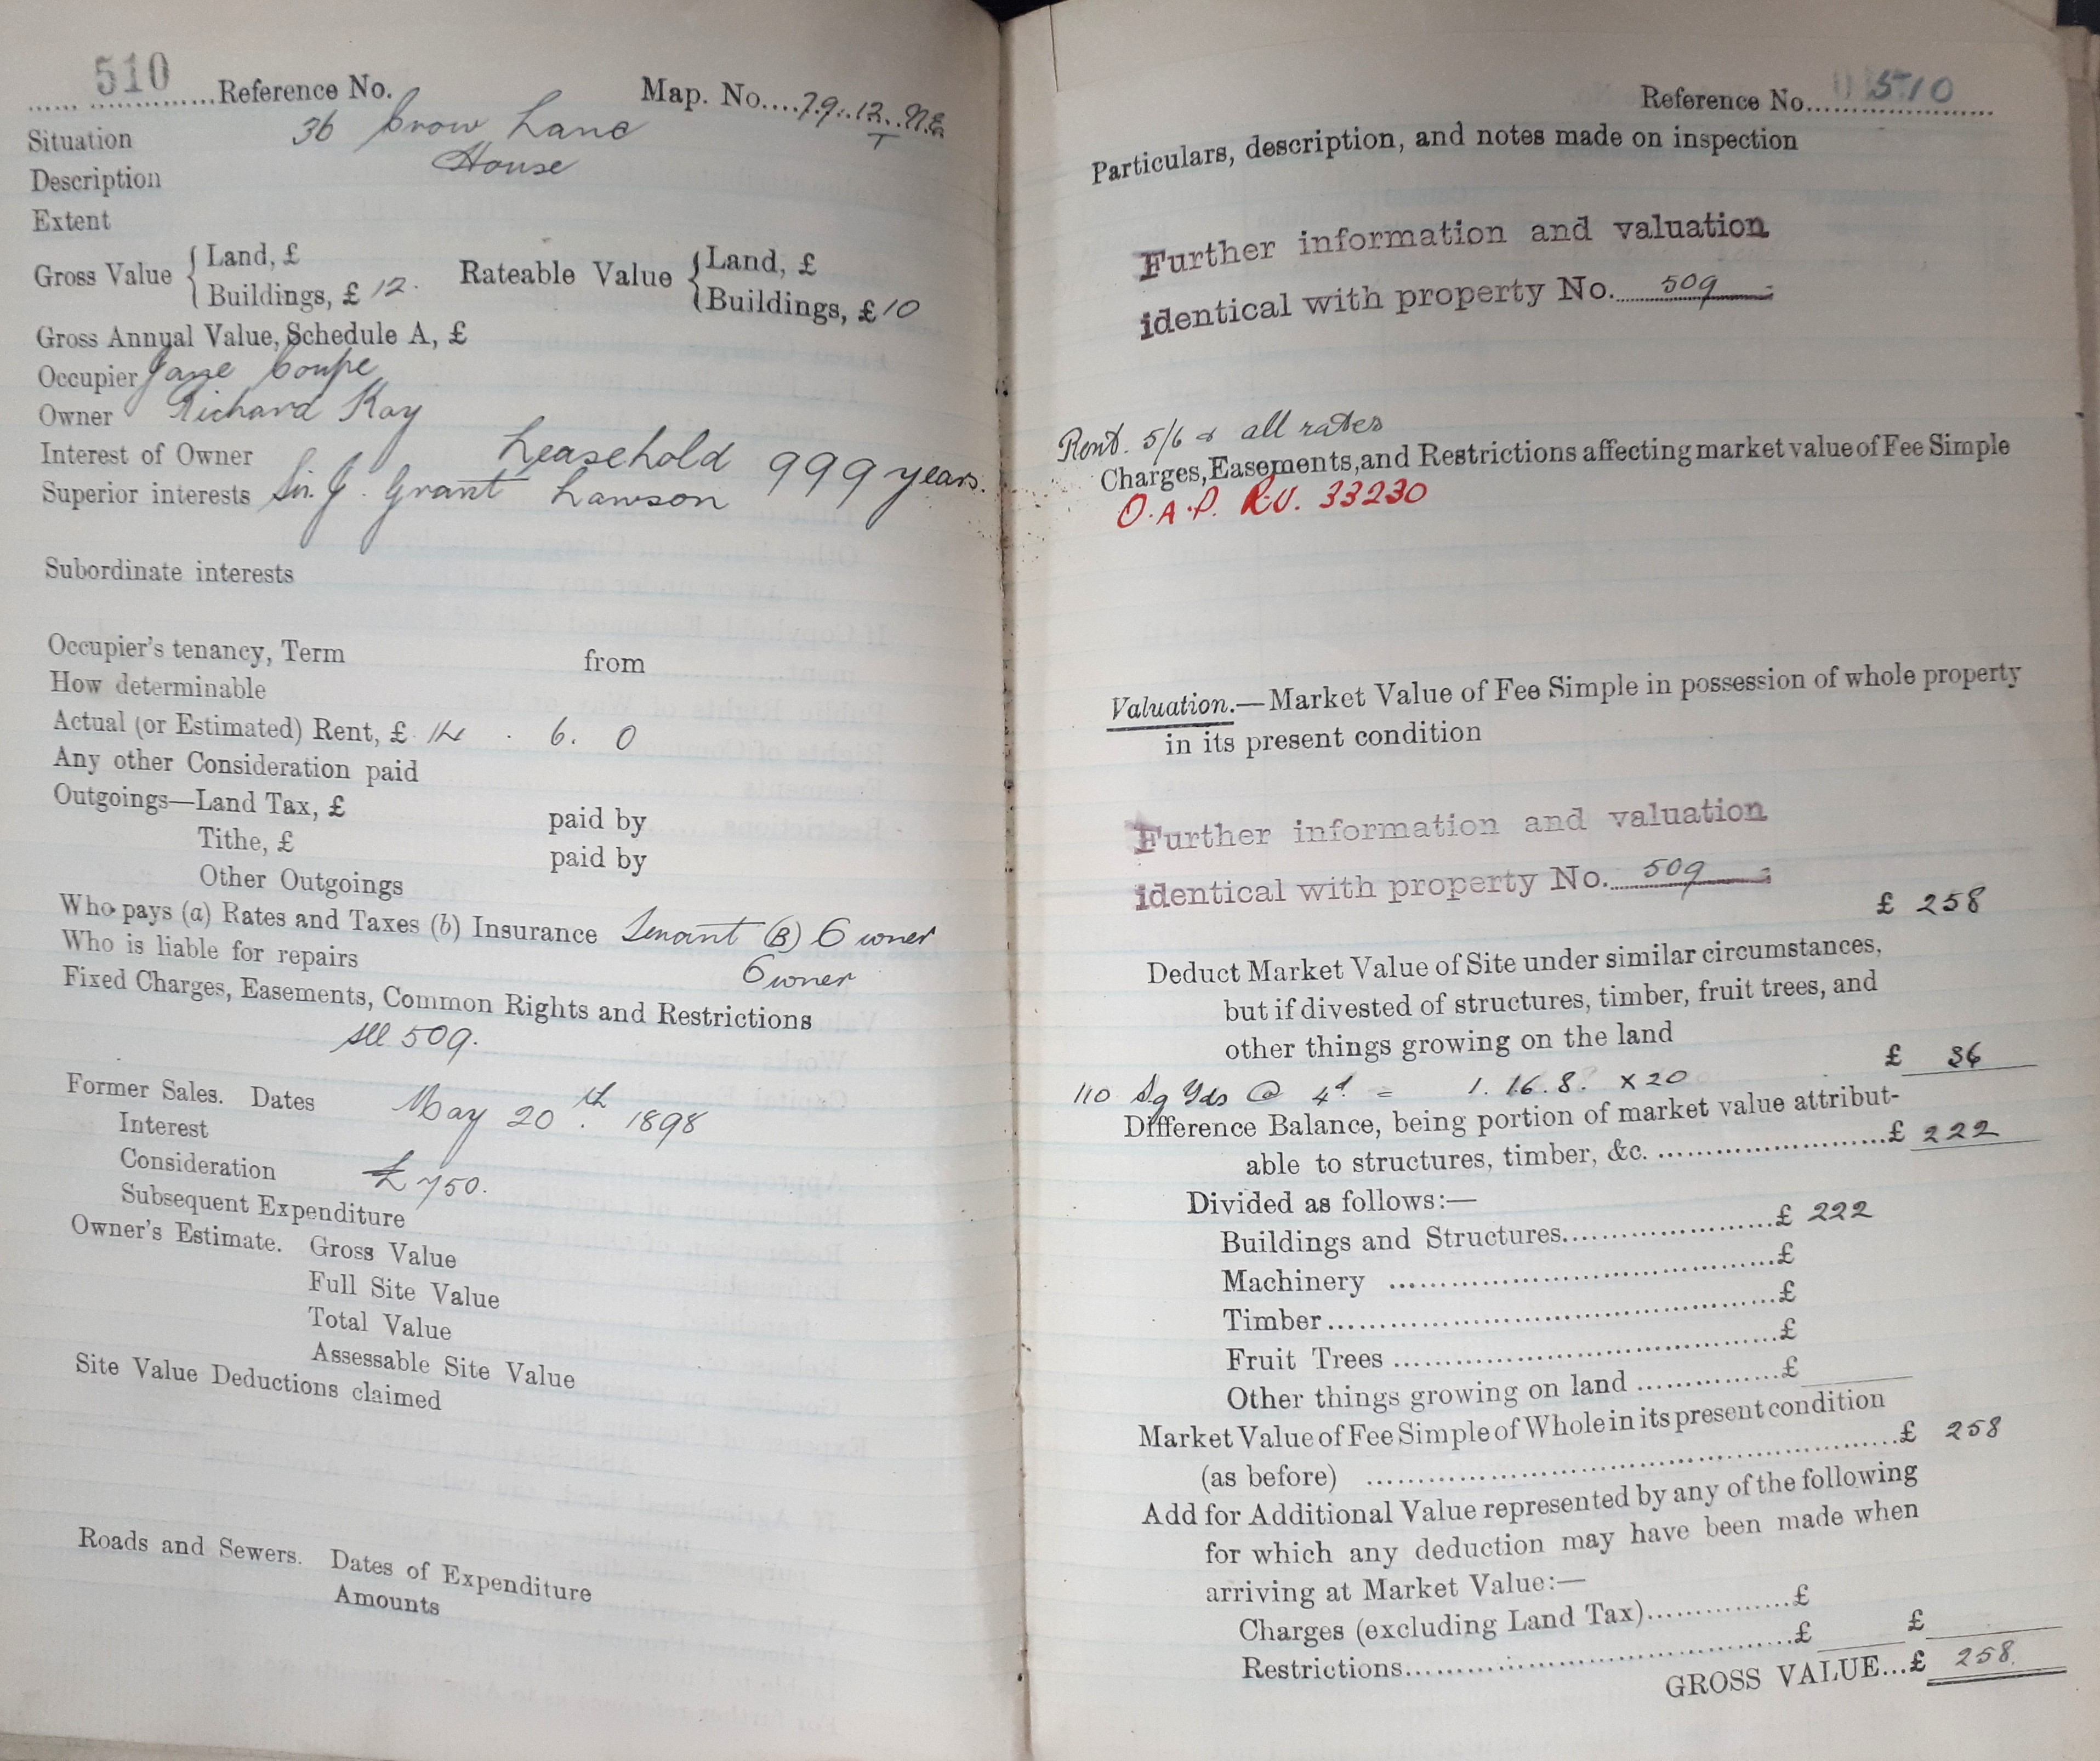 510 Reference No. Map. No. 79.12. N.E.
T
Situation 36 Crow Lane
Description House
Extent
Gross Value { Land, £ Rateable Value { Land, £
Buildings, £ 12. Buildings, £ 10
Gross Annual Value, Schedule A, £
Occupier Jane Coupe
Owner Richard Kay
Interest of Owner Leasehold 999 years.
Superior interests Sir. J. Grant Lawson
Subordinate interests
Occupier's tenancy, Term from
How determinable
Actual (or Estimated) Rent, £ 14 . 6. 0
Any other Consideration paid
Outgoings—Land Tax, £ paid by
Tithe, £ paid by
Other Outgoings
Who pays (a) Rates and Taxes (b) Insurance Tenant (B) Owner
Who is liable for repairs Owner
Fixed Charges, Easements, Common Rights and Restrictions
see 509.
Former Sales. Dates May 20th. 1898
Interest
Consideration £750.
Subsequent Expenditure
Owner's Estimate. Gross Value
Full Site Value
Total Value
Assessable Site Value
Site Value Deductions claimed
Roads and Sewers. Dates of Expenditure
Amounts
Reference No. 510
Particulars, description, and notes made on inspection
Further information and valuation
identical with property No. 509
Rent. 5/6 & all rates
Charges, Easements, and Restrictions affecting market value of Fee Simple
O.A.P. R.V. 33230
Valuation.—Market Value of Fee Simple in possession of whole property
in its present condition
Further information and valuation
identical with property No. 509
£ 258
Deduct Market Value of Site under similar circumstances,
but if divested of structures, timber, fruit trees, and
other things growing on the land
£ 36
110 Sq Yds @ 4d = 1. 16. 8. x 20
Difference Balance, being portion of market value attribut-
able to structures, timber, &c. £ 222
Divided as follows:—
Buildings and Structures £ 222
Machinery £
Timber £
Fruit Trees £
Other things growing on land £
Market Value of Fee Simple of Whole in its present condition
(as before) £ 258
Add for Additional Value represented by any of the following
for which any deduction may have been made when
arriving at Market Value:—
Charges (excluding Land Tax) £
Restrictions £ £
GROSS VALUE...£ 258.